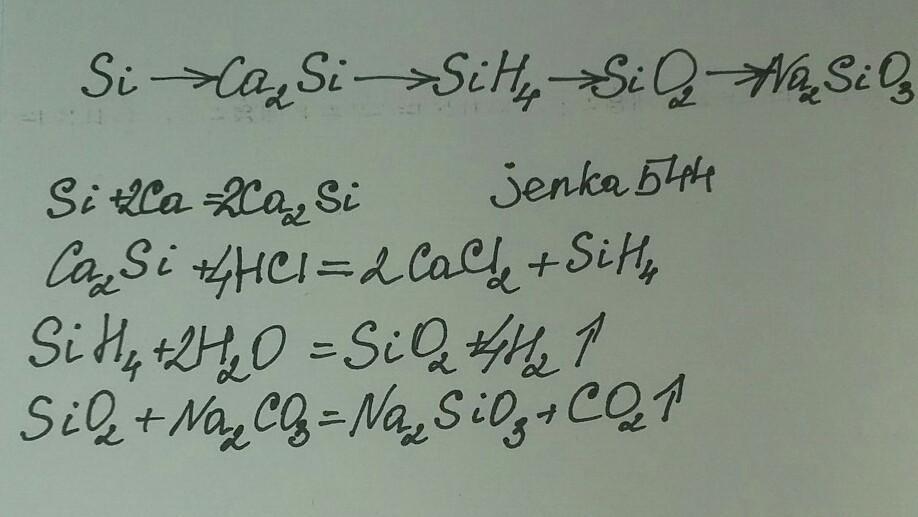 Si → Ca₂Si → SiH₄ → SiO₂ → Na₂SiO₃
Si + 2Ca = 2Ca₂Si jenka544
Ca₂Si + 4HCl = 2CaCl₂ + SiH₄
SiH₄ + 2H₂O = SiO₂ + 4H₂ ↑
SiO₂ + Na₂CO₃ = Na₂SiO₃ + CO₂ ↑